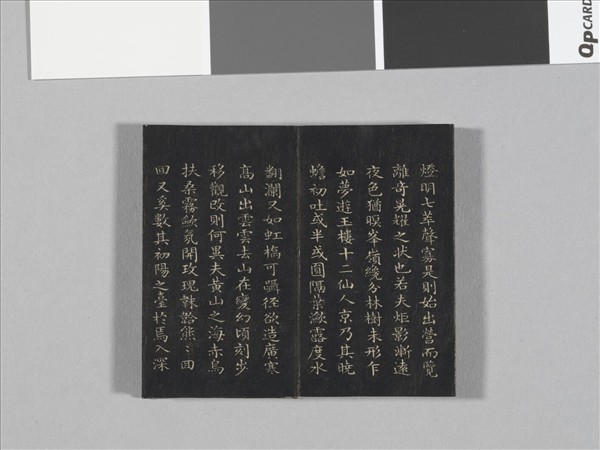 燈明七萃聲寥是則始出營而覽
離奇晃耀之狀也若夫炬影漸遠
夜色猶暝峯嶺纔分林樹未形乍
如夢遊玉樓十二仙人京乃其曉
蟾初吐或半或圓隔葉漱露度水
翻瀾又如虹橋可躡徑欲造廣寒
高山出雲雲去山在變幻頃刻步
移觀改則何異夫黃山之海赤烏
扶桑霧歛氛開玫瑰韡韐熊〻回
回又奚數真初陽之臺於焉入深
QpCARD